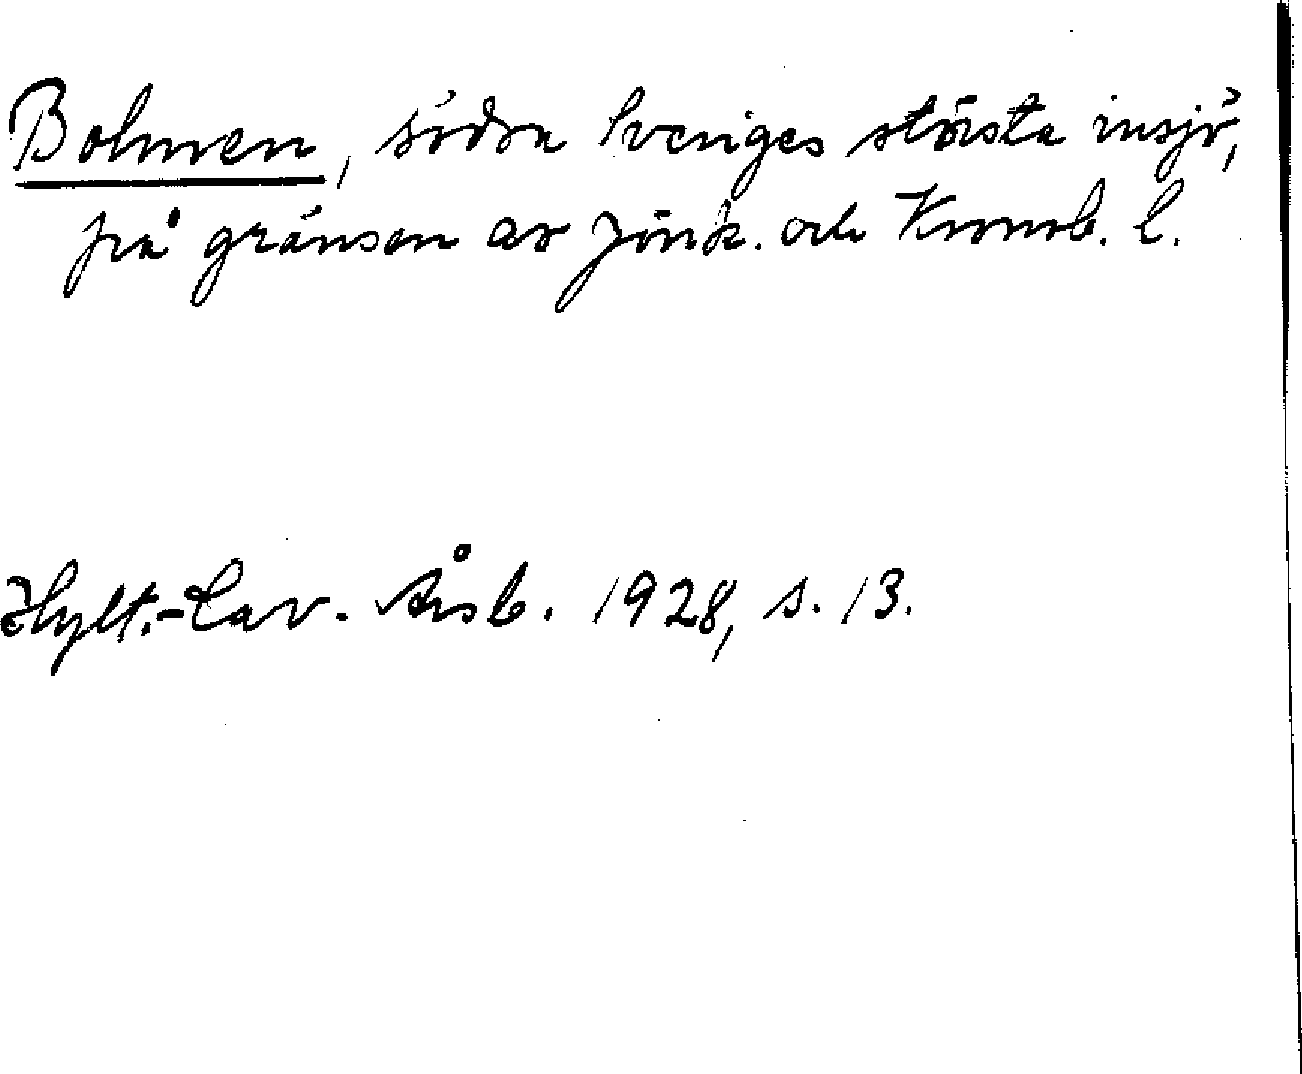 Bolmen, södra Sveriges största insjö,
på gränsen av Jönk. och Kronob. l.
Hylt.-Cav. Årsb. 1928, s. 13.